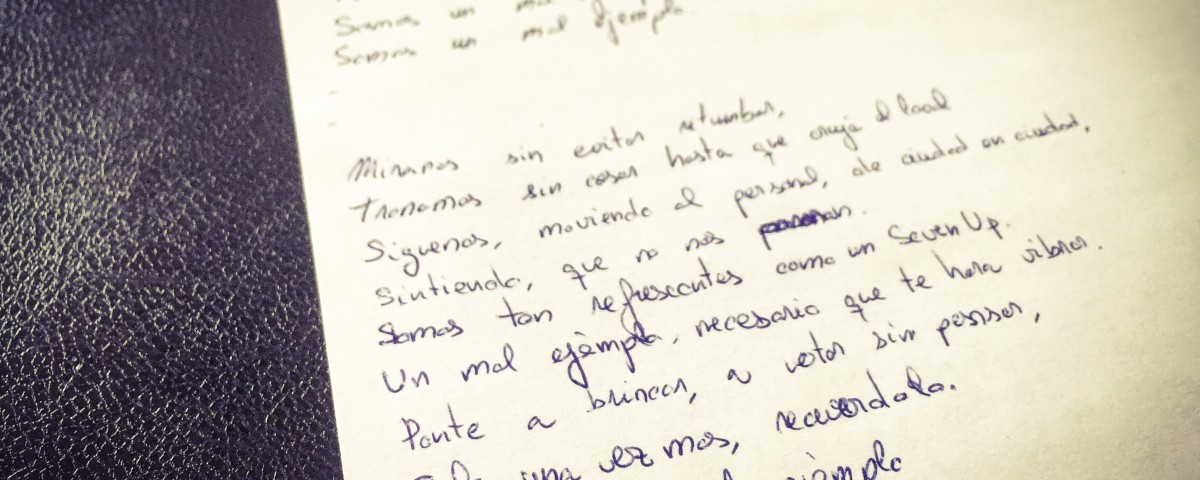 Somos un mal
Somos un mal ejemplo.
Miranos sin evitar retumbar,
tronamos sin cesar hasta que cruja el local
Siguenos, moviendo el personal, de ciudad en ciudad,
Sintiendo, que no nos pararan.
Somos tan refrescantes como un Seven Up.
Un mal ejemplo, necesario que te hara vibrar.
Ponte a brincar, a votar sin pensar,
una vez mas, recuerdala.
ejemplo